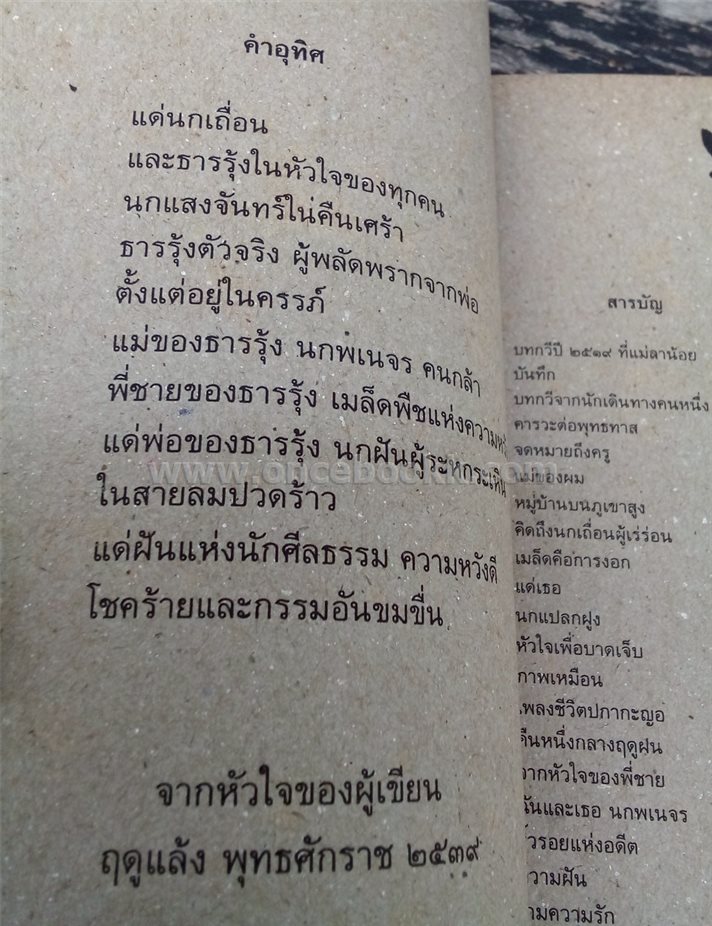 คำอุทิศ
แด่นกเถื่อน
และธารรุ้งในหัวใจของทุกคน
นกแสงจันทร์ในคืนเศร้า
ธารรุ้งตัวจริง ผู้พลัดพรากจากพ่อ
ตั้งแต่อยู่ในครรภ์
แม่ของธารรุ้ง นกพเนจร คนกล้า
พี่ชายของธารรุ้ง เมล็ดพืชแห่ง
แด่พ่อของธารรุ้ง นกฝันผู้ระหกระเหิน
ในสายลมปวดร้าว
แด่ฝันแห่งนักศีลธรรม ความหวังดี
โชคร้ายและกรรมอันขมขื่น
จากหัวใจของผู้เขียน
ฤดูแล้ง พุทธศักราช ๒๕๓๙
สารบัญ
บทกวีปี ๒๕๑๙ ที่แม่ลาน้อย
บันทึก
บทกวีจากนักเดินทางคนหนึ่ง
คารวะต่อพุทธทาส
จดหมายถึงครู
แม่ของผม
หมู่บ้านบนภูเขาสูง
คิดถึงนกเถื่อนผู้เร่ร่อน
เมล็ดคือการงอก
แด่เธอ
นกแปลกฝูง
หัวใจเพื่อบาดเจ็บ
ภาพเหมือน
เพลงชีวิตปกากะญอ
คืนหนึ่งกลางฤดูฝน
จากหัวใจของพี่ชาย
ฉันและเธอ นกพเนจร
รอยแห่งอดีต
ความฝัน
ความรัก
www.oncebookk.com